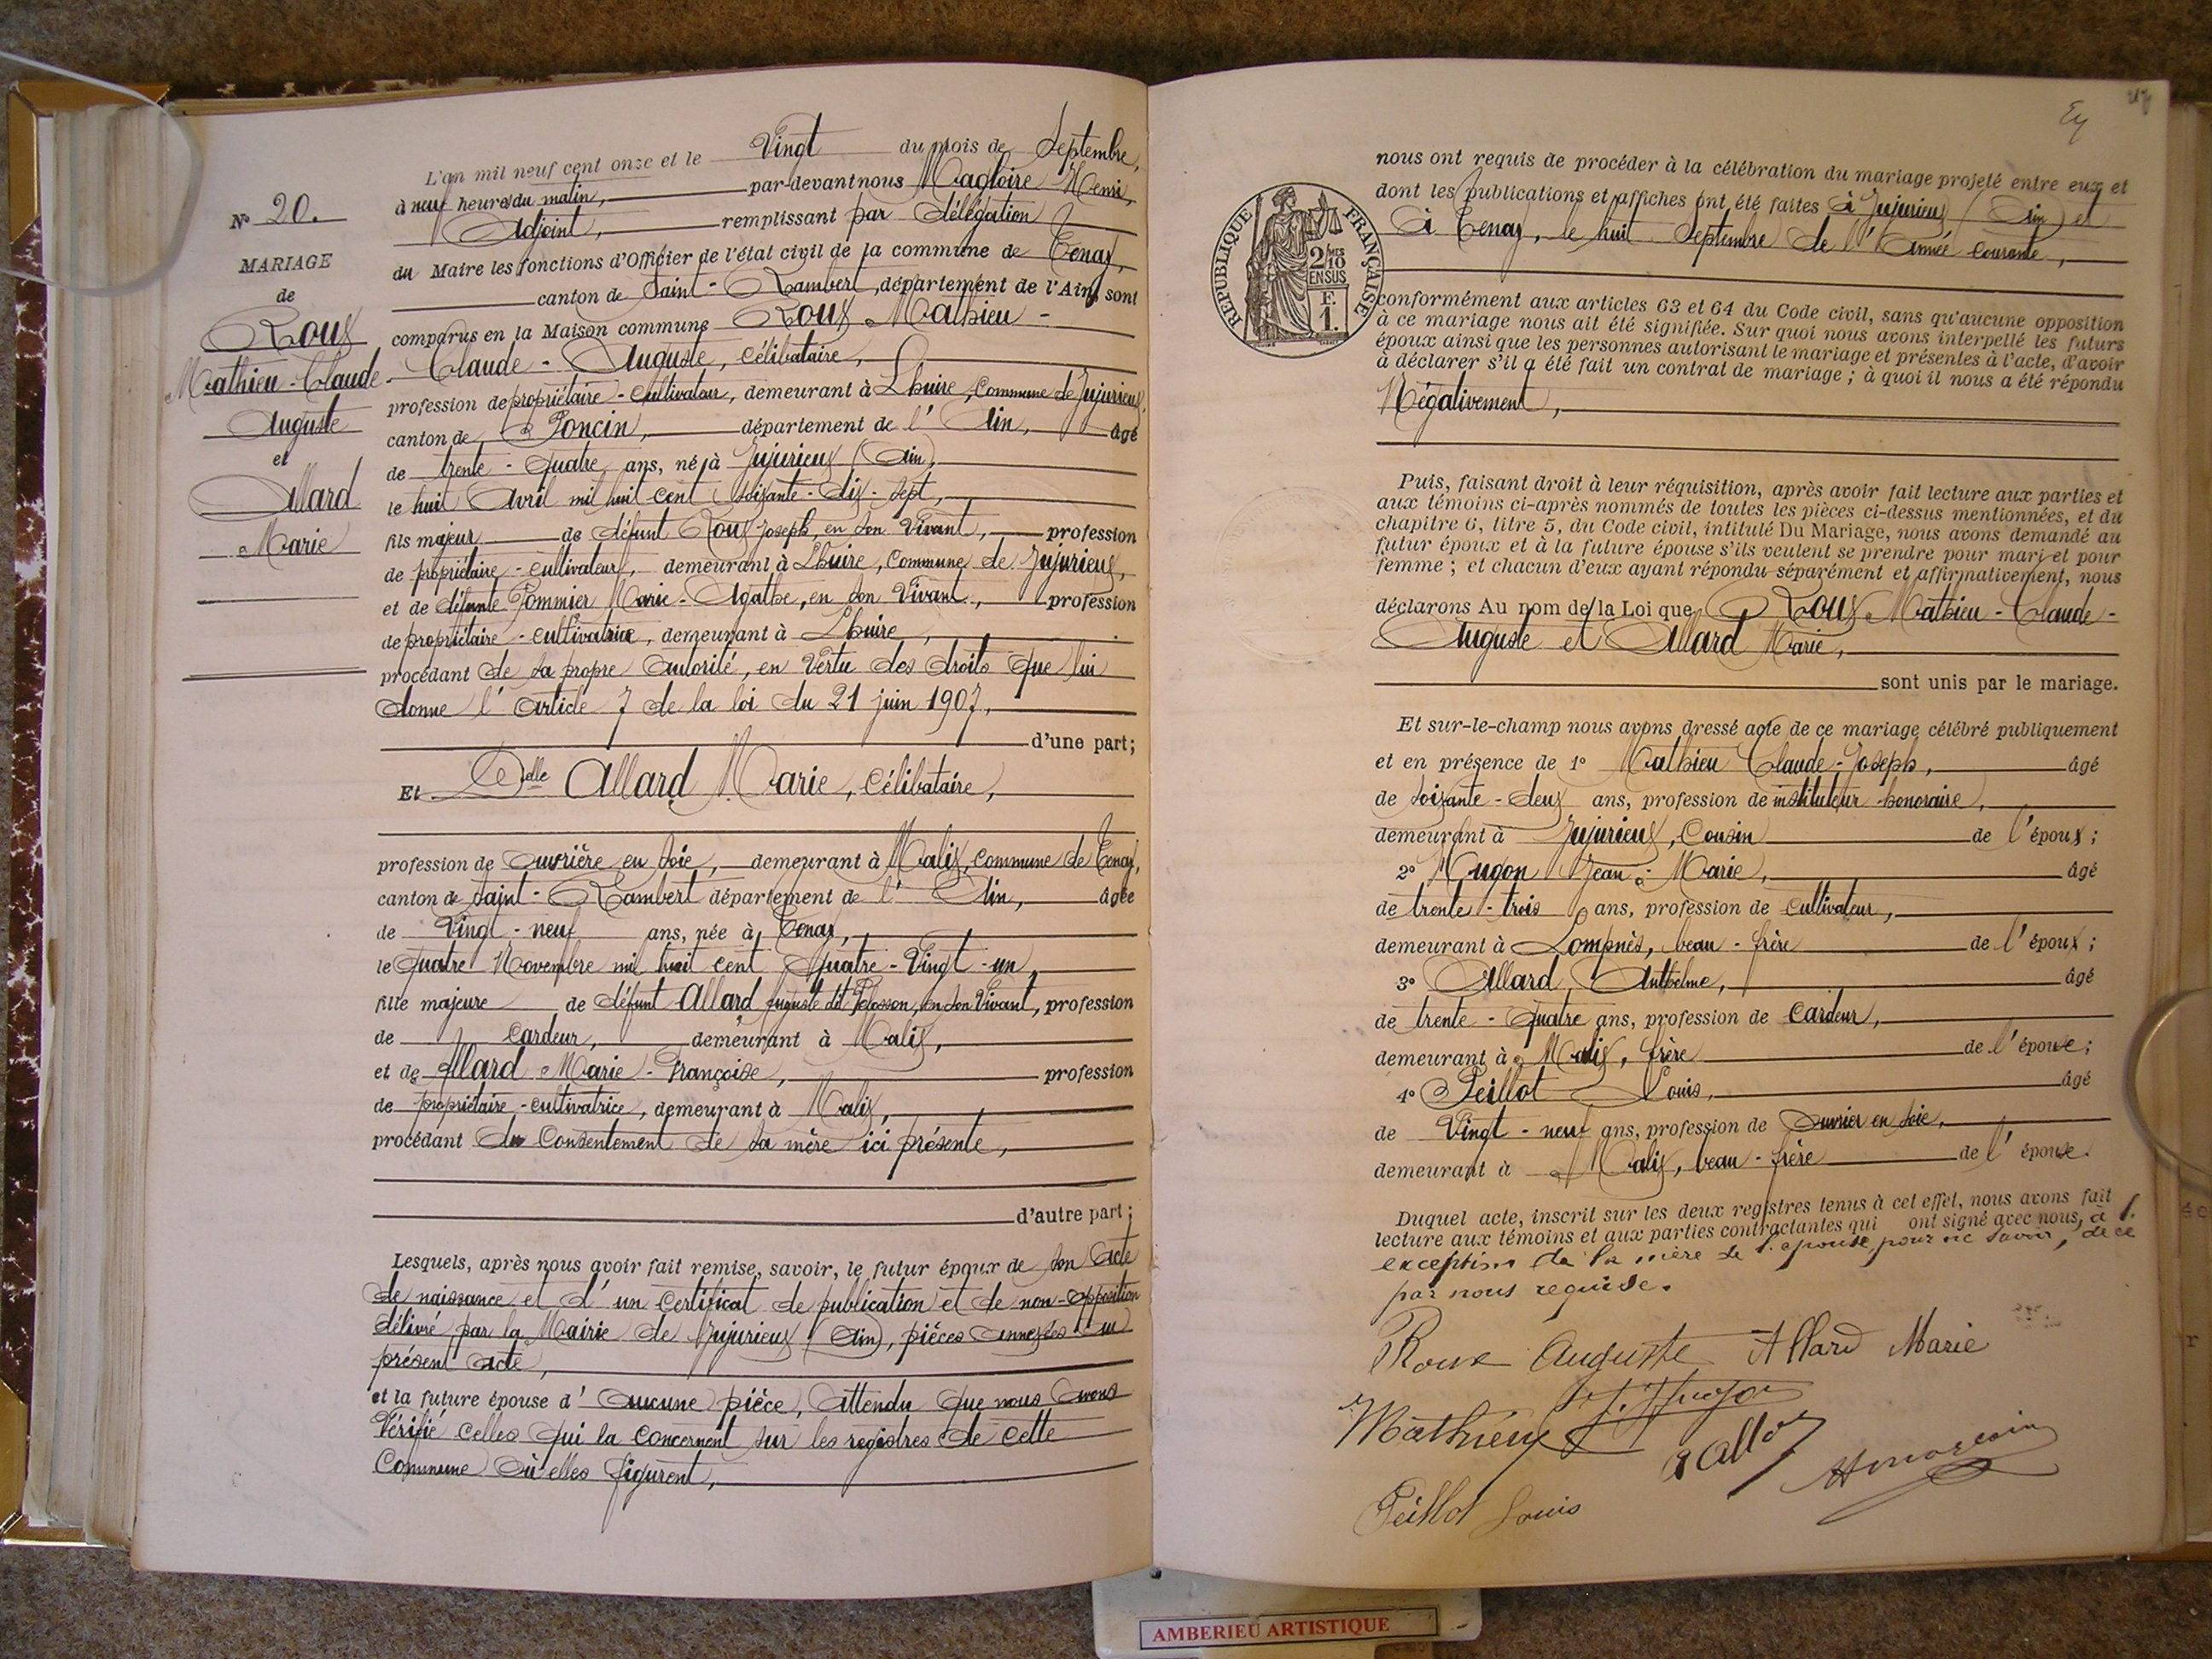 L'an mil neuf cent onze et le Vingt du mois de Septembre,
à neuf heures du matin, par-devant nous Magloire Henri,
Adjoint, remplissant par délégation
du Maire les fonctions d'Officier de l'état civil de la commune de Tenay,
canton de Saint-Rambert, département de l'Ain sont
comparus en la Maison commune Roux Mathieu-
Claude-Auguste, célibataire,
profession de propriétaire-cultivateur, demeurant à Lhuire, Commune de Jujurieux,
canton de Poncin, département de l'Ain, âgé
de trente-quatre ans, né à Jujurieux (Ain),
le huit Avril mil huit cent soixante-dix-sept,
fils majeur de défunt Roux Joseph, en son Vivant, profession
de propriétaire-cultivateur, demeurant à Lhuire, Commune de Jujurieux,
et de défunte Pommier Marie-Agathe, en son Vivant, profession
de propriétaire-cultivatrice, demeurant à Lhuire,
procédant de sa propre autorité, en vertu des droits que lui
donne l'article 7 de la loi du 21 juin 1907,
d'une part;
Et Delle Allard Marie, célibataire,
profession de ouvrière en soie, demeurant à Malix, commune de Tenay,
canton de Saint-Rambert département de l'Ain, âgée
de Vingt-neuf ans, née à Tenay,
le quatre Novembre mil huit cent quatre-vingt-un,
fille majeure de défunt Allard Auguste dit Pelosson, en son Vivant, profession
de cardeur, demeurant à Malix,
et de Allard Marie-Françoise, profession
de propriétaire-cultivatrice, demeurant à Malix,
procédant du Consentement de sa mère ici présente,
d'autre part;
Lesquels, après nous avoir fait remise, savoir, le futur époux de son Acte
de naissance et d'un certificat de publication et de non-opposition
délivré par la Mairie de Jujurieux (Ain), pièces annexées au
présent acte,
et la future épouse d'aucune pièce, attendu que nous avons
Vérifié celles qui la concernent sur les registres de cette
Commune où elles figurent,
N° 20.
MARIAGE
de
Roux
Mathieu-Claude-
Auguste
et
Allard
Marie
nous ont requis de procéder à la célébration du mariage projeté entre eux et
dont les publications et affiches ont été faites à Jujurieux (Ain) et
à Tenay, le huit Septembre de l'Année courante,
conformément aux articles 63 et 64 du Code civil, sans qu'aucune opposition
à ce mariage nous ait été signifiée. Sur quoi nous avons interpellé les futurs
époux ainsi que les personnes autorisant le mariage et présentes à l'acte, d'avoir
à déclarer s'il a été fait un contrat de mariage; à quoi il nous a été répondu
Négativement,
RÉPUBLIQUE FRANÇAISE
2/10
EN SUS
F.
1.
Puis, faisant droit à leur réquisition, après avoir fait lecture aux parties et
aux témoins ci-après nommés de toutes les pièces ci-dessus mentionnées, et du
chapitre 6, titre 5, du Code civil, intitulé Du Mariage, nous avons demandé au
futur époux et à la future épouse s'ils veulent se prendre pour mari et pour
femme; et chacun d'eux ayant répondu séparément et affirmativement, nous
déclarons Au nom de la Loi que Roux Mathieu-Claude-
Auguste et Allard Marie,
sont unis par le mariage.
Et sur-le-champ nous avons dressé acte de ce mariage célébré publiquement
et en présence de 1° Mathieu Claude-Joseph, âgé
de soixante-deux ans, profession de instituteur honoraire,
demeurant à Jujurieux, Cousin de l'époux;
2° Hugon Jean-Marie, âgé
de trente-trois ans, profession de cultivateur,
demeurant à Lompnès, beau-frère de l'époux;
3° Allard Anthelme, âgé
de trente-quatre ans, profession de cardeur,
demeurant à Malix, frère de l'épouse;
4° Peillot Louis, âgé
de Vingt-neuf ans, profession de ouvrier en soie,
demeurant à Malix, beau-frère de l'épouse.
Duquel acte, inscrit sur les deux registres tenus à cet effet, nous avons fait
lecture aux témoins et aux parties contractantes qui ont signé avec nous, à l'
exception de la mère de l'épouse, pour ne savoir, de ce
par nous requise.
Roux Auguste Allard Marie
Mathieu J. Hugon
A Allard
Peillot Louis
AMBERIEU ARTISTIQUE